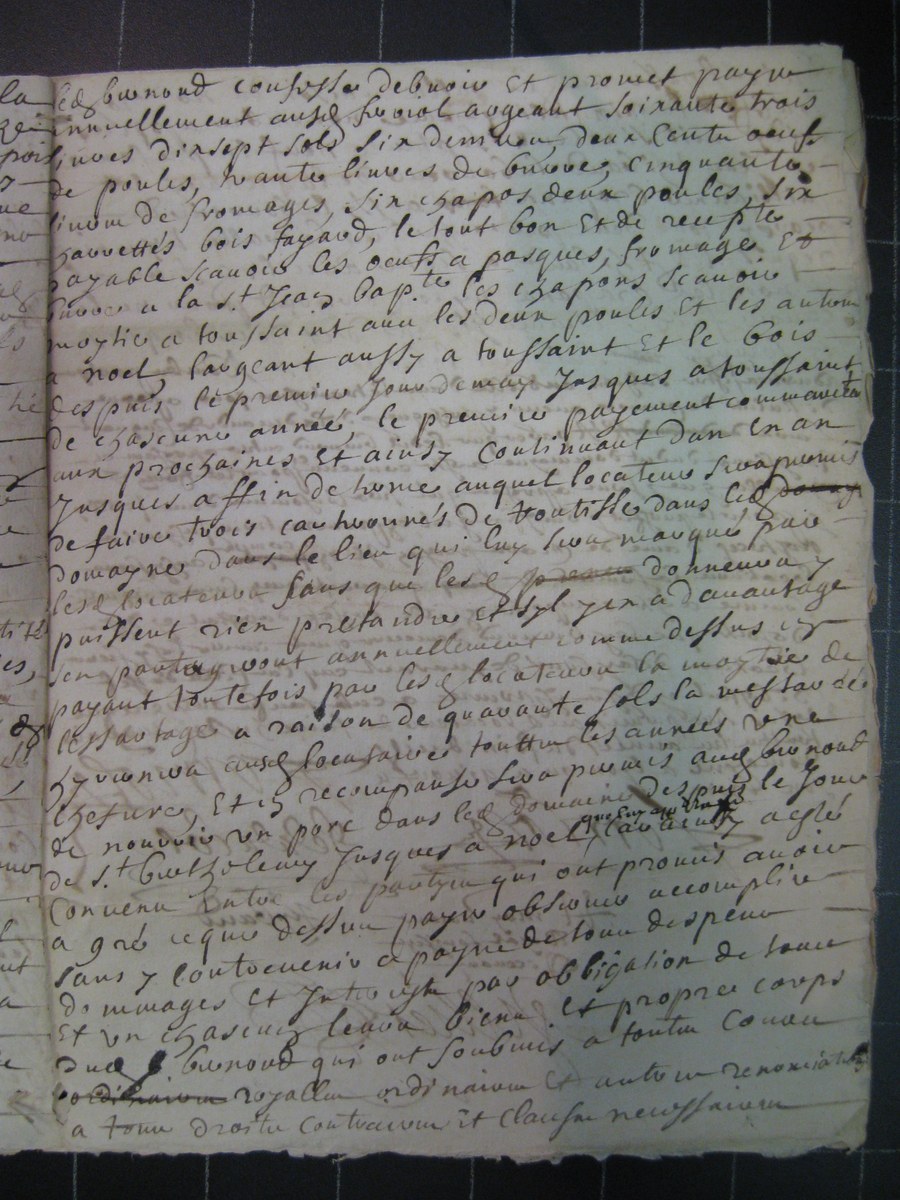 led bernond confesse debvoir Et promet payer
annuellement ausd froiol argeant soixante trois
livres dixsept sols six deniers, deux Centz oeufs
de poules, trante livres de burre, cinquante
livres de fromages, six chapos deux poules, six
charrettés bois fayard, le tout bon Et de recepte
payable scavoir les oeufs a pasques, fromage Et
burre a la st Jean bapte les chapons scavoir
moytié a toussaint avec les deux poules Et les autres
a noel, largeant aussy a toussaint Et le bois
despuis le premier Jour de may Jusques a toussaint
de chascune année, le premier payement commancera
aux prochaines Et ainsy Continuant dan En an
Jusques a ffin de terme auquel locateur sera permis
de faire trois de dans led
domayne dans le lieu qui luy sera marqué par
lesd locateurs sans que lesd donneurs y
puissent rien pretandre et syl yen a davantage
sen partageront annuellement comme dessus En
payant toutefois par lesd locateurs la moytié de
a raison de quarante sols la
ausd locataires touttes les années une
Et En recompanse sera permis aud bernond
de nourrir un porc dans led domaine despuis le Jour
de st berthelemy Jusques a noel, Car ainsy a esté
Convenu Entre les partyes qui ont promis avoir
a gré ce que dessus payer observer accomplir
sans y Contrevenir a payne de tous despens
dommages Et Interestz par obligation de tous
Et un chascung leurs biens Et propre corps
dud bernond qui ont soubmis a toutes Cours
ordinaires royalles ordinaires Et autres renonciation
a tous droitz Contraires Et Clauses necessaires